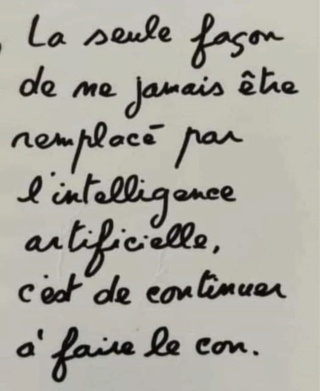 La seule façon
de ne jamais être
remplacé par
l'intelligence
artificielle,
c'est de continuer
à faire le con.